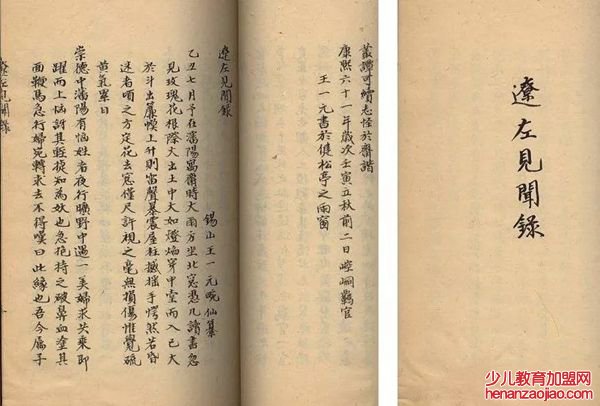 遼左見聞錄
叢譚可續志怪於齊諧
康熙六十一年歲次壬寅立秋前二日崆峒羈官
王一元書於健松亭之雨窗
遼左見聞錄
錫山王一元畹仙纂
乙丑七月予在瀋陽寓齋時大雨方坐北窓憑几讀書忽
見玫瑰花根際火出土中大如燈焔穿中堂而入已大
於斗出簾幙上升則雷聲暴震屋柱撼搖予愕然若昏
迷者頃之方定花去窓僅尺許視之毫無損傷惟覺硫
黄氣累日
崇德中瀋陽有惱姓者夜行曠野中遇一美婦求共乘即
躍而上惱訝其輕捷知為妖也急抱持之破鼻血塗其
面鞭馬急行婦宛轉求去不得嘆曰此緣也吾今屬子
遼左見聞錄
少儿教育加盟网
henanzaojiao.com